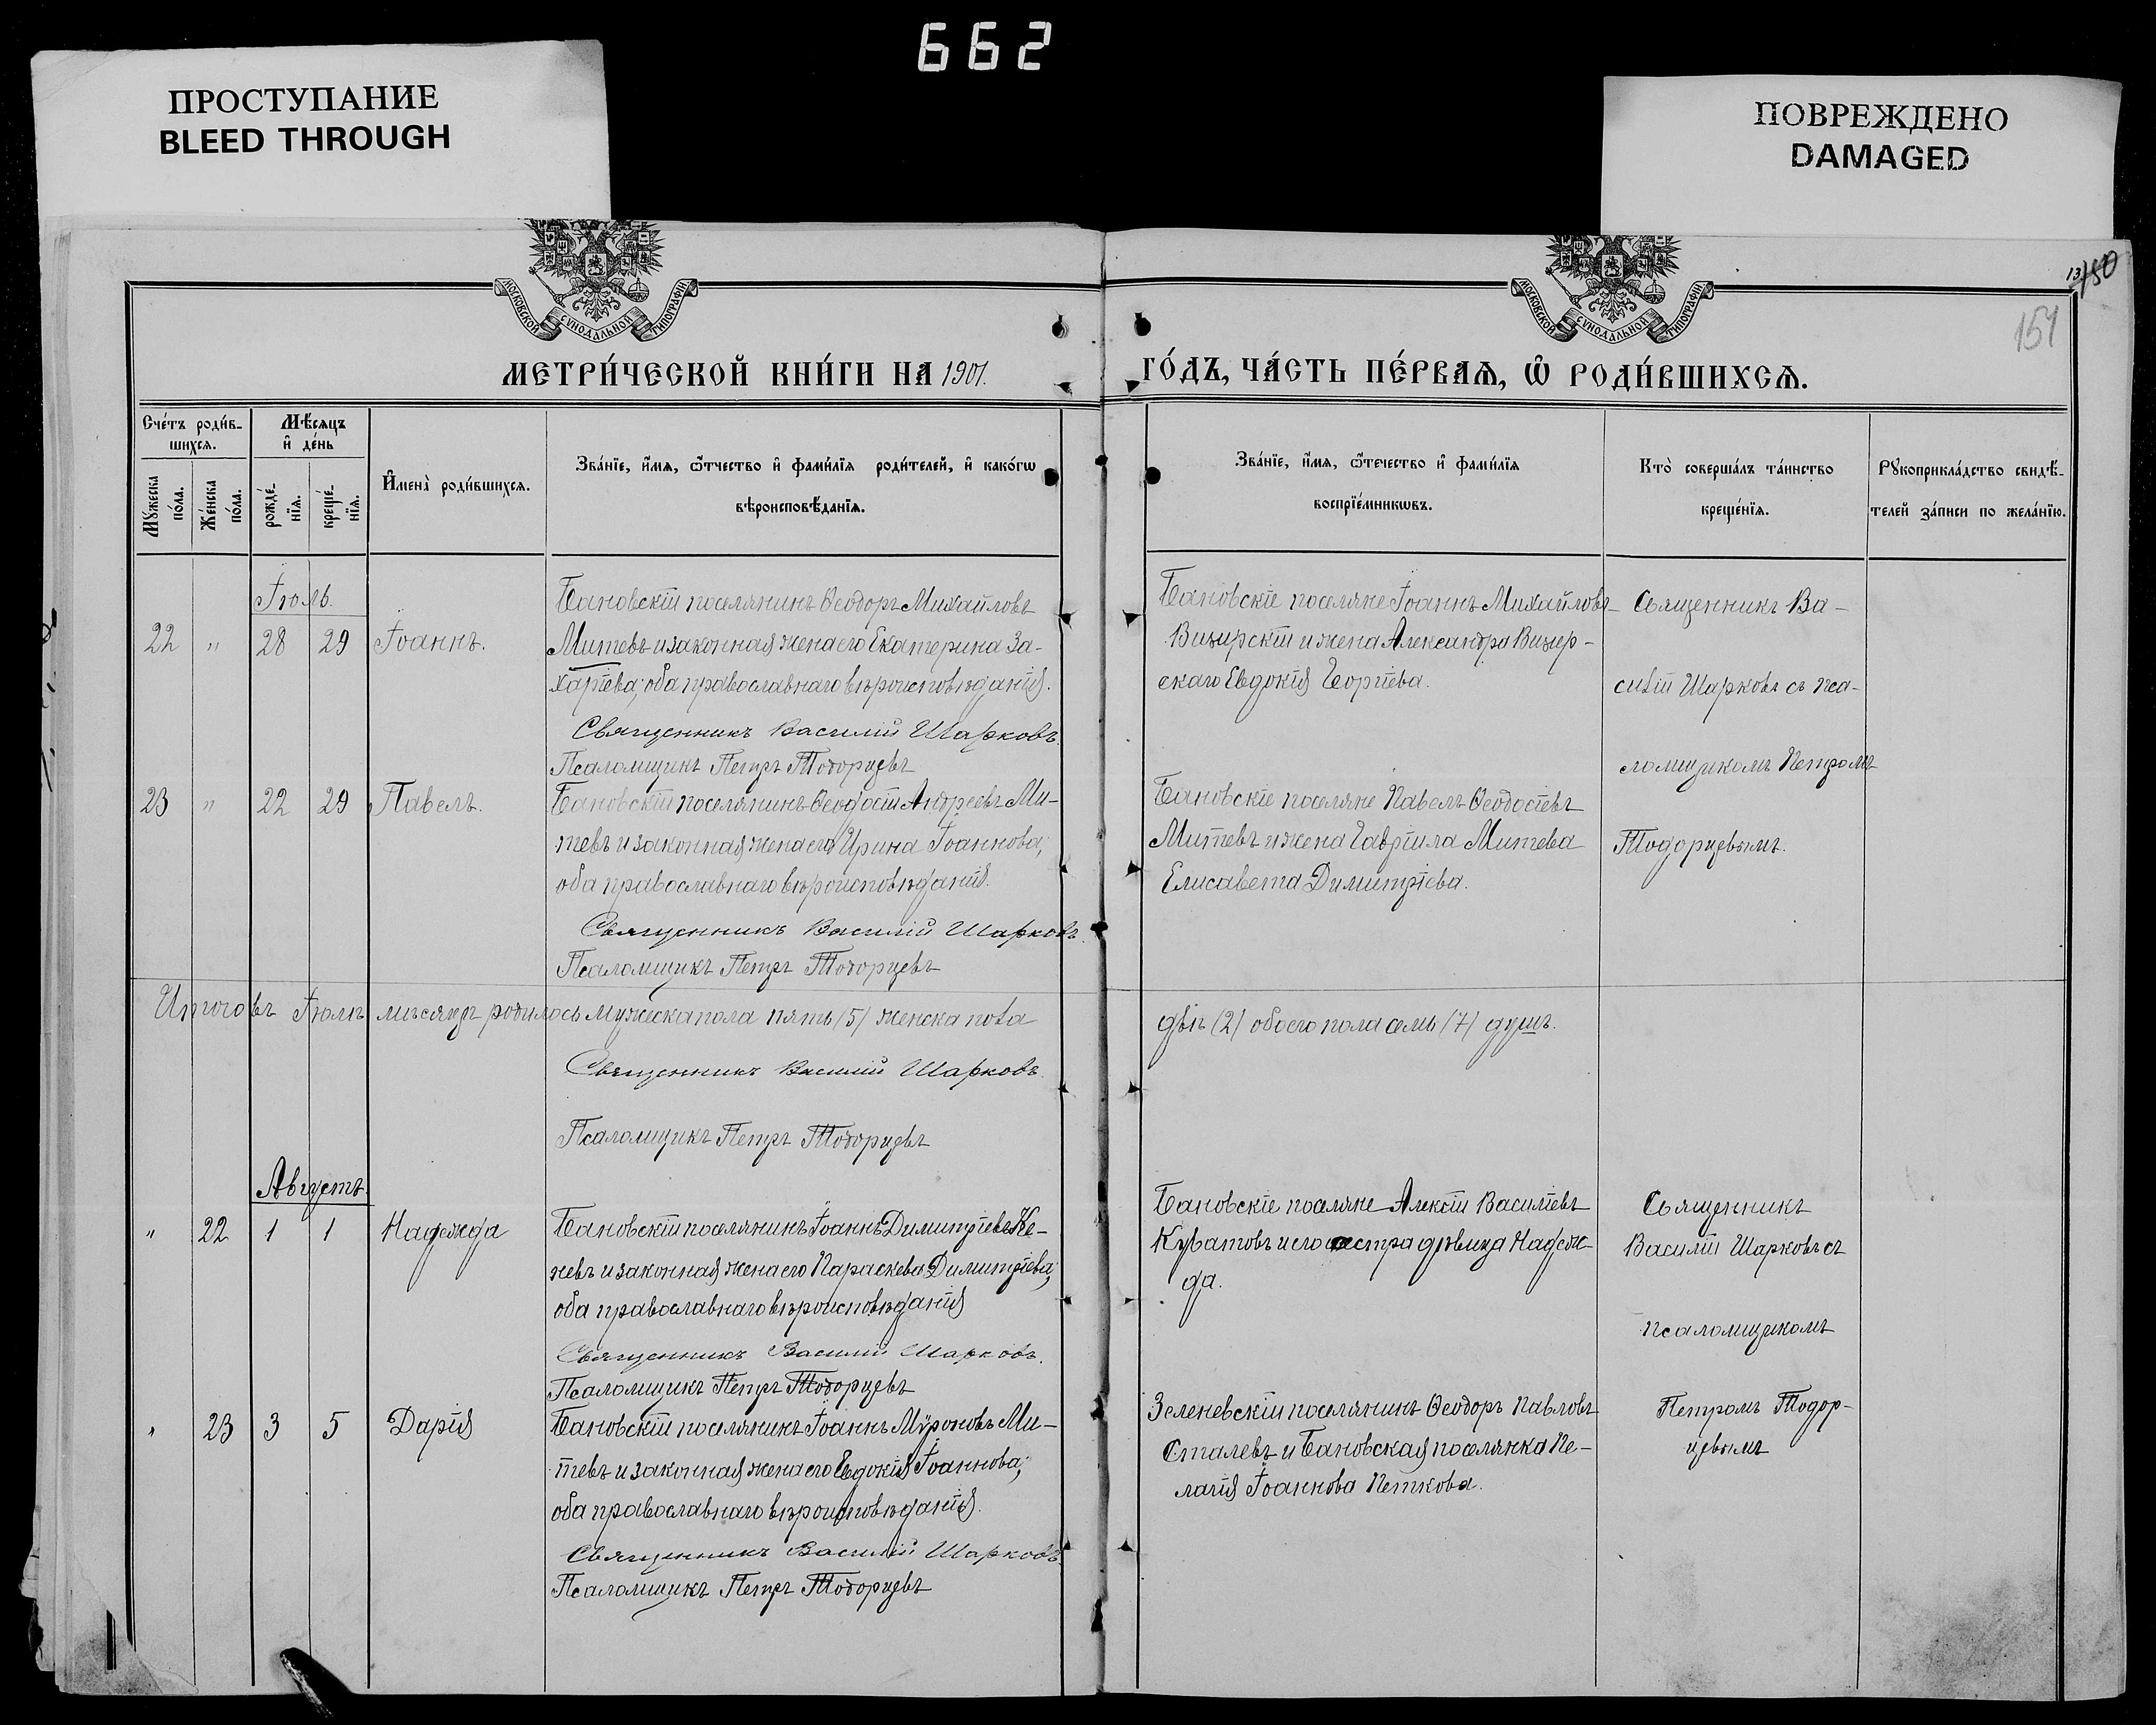 662
ПРОСТУПАНИЕ
BLEED THROUGH
ПОВРЕЖДЕНО
DAMAGED
МОСКОВСКОЙ СУНОДАЛЬНОЙ ТИПОГРАФІИ
МОСКОВСКОЙ СУНОДАЛЬНОЙ ТИПОГРАФІИ
150
151
МЕТРИ́ЧЕСКОЙ КНИ́ГИ НА 1901.
ГО́ДЪ, ЧА́СТЬ ПЕ́РВАѦ, Ѡ҆ РОДИ́ВШИХСѦ.
Сче́тъ роди́в-
шихсѧ.
Мѣ́сѧцъ
и҆ де́нь
Мꙋ́жеска
по́ла.
Же́нска
по́ла.
рожде́-
нїѧ.
креще́-
нїѧ.
И҆мена̀ роди́вшихсѧ.
Зва́нїе, и҆́мѧ, ѻ҆́тчество и҆ фами́лїѧ роди́телей, и҆ како́гѡ
вѣроисповѣ́данїѧ.
Зва́нїе, и҆́мѧ, ѻ҆́течество и҆ фами́лїѧ
воспрїе́мникѡвъ.
Кто̀ соверша́лъ та́инство
креще́нїѧ.
Рꙋкоприкла́дство свидѣ́-
телей за́писи по жела́нїю.
Іюль.
22 " 28 29 Іоаннъ.
Бановскій поселянинъ Ѳеодоръ Михайловъ
Митевъ и законная жена его Екатерина За-
харіева; оба православнаго вѣроисповѣданія.
Священникъ Василій Шарковъ.
Псаломщикъ Петръ Тодорцевъ
Бановскіе поселяне Іоаннъ Михайловъ
Визирскій и жена Александра Визир-
скаго Евдокія Георгіева.
Священникъ Ва-
силій Шарковъ съ пса-
ломщикомъ Петромъ
Тодорцевымъ.
23 " 22 29 Павелъ.
Бановскій поселянинъ Ѳеодосій Андреевъ Ми-
тевъ и законная жена его Ирина Іоаннова;
оба православнаго вѣроисповѣданія.
Священникъ Василій Шарковъ.
Псаломщикъ Петръ Тодорцевъ
Бановскіе поселяне Павелъ Ѳеодосіевъ
Митевъ и жена Гавріила Митева
Елисавета Димитріева.
Итого въ Іюлѣ мѣсяцѣ родилось мужеска пола пять (5) женска пола
двѣ (2) обоего пола семь (7) душъ.
Священникъ Василій Шарковъ.
Псаломщикъ Петръ Тодорцевъ
Августъ.
" 22 1 1 Надежда
Бановскій поселянинъ Іоаннъ Димитріевъ Же-
невъ и законная жена его Параскева Димитріева;
оба православнаго вѣроисповѣданія
Священникъ Василій Шарковъ.
Псаломщикъ Петръ Тодорцевъ
Бановскіе поселяне Алексій Василіевъ
Куватовъ и его сестра дѣвица Надеж-
да.
Священникъ
Василій Шарковъ съ
псаломщикомъ
Петромъ Тодор-
цевымъ
" 23 3 5 Дарія
Бановскій поселянинъ Іоаннъ Мѵроновъ Ми-
тевъ и законная жена его Евдокія Іоаннова;
оба православнаго вѣроисповѣданія.
Священникъ Василій Шарковъ.
Псаломщикъ Петръ Тодорцевъ
Зеленевскій поселянинъ Ѳеодоръ Павловъ
Сталевъ и Бановская поселянка Пе-
лагія Іоаннова Петкова.